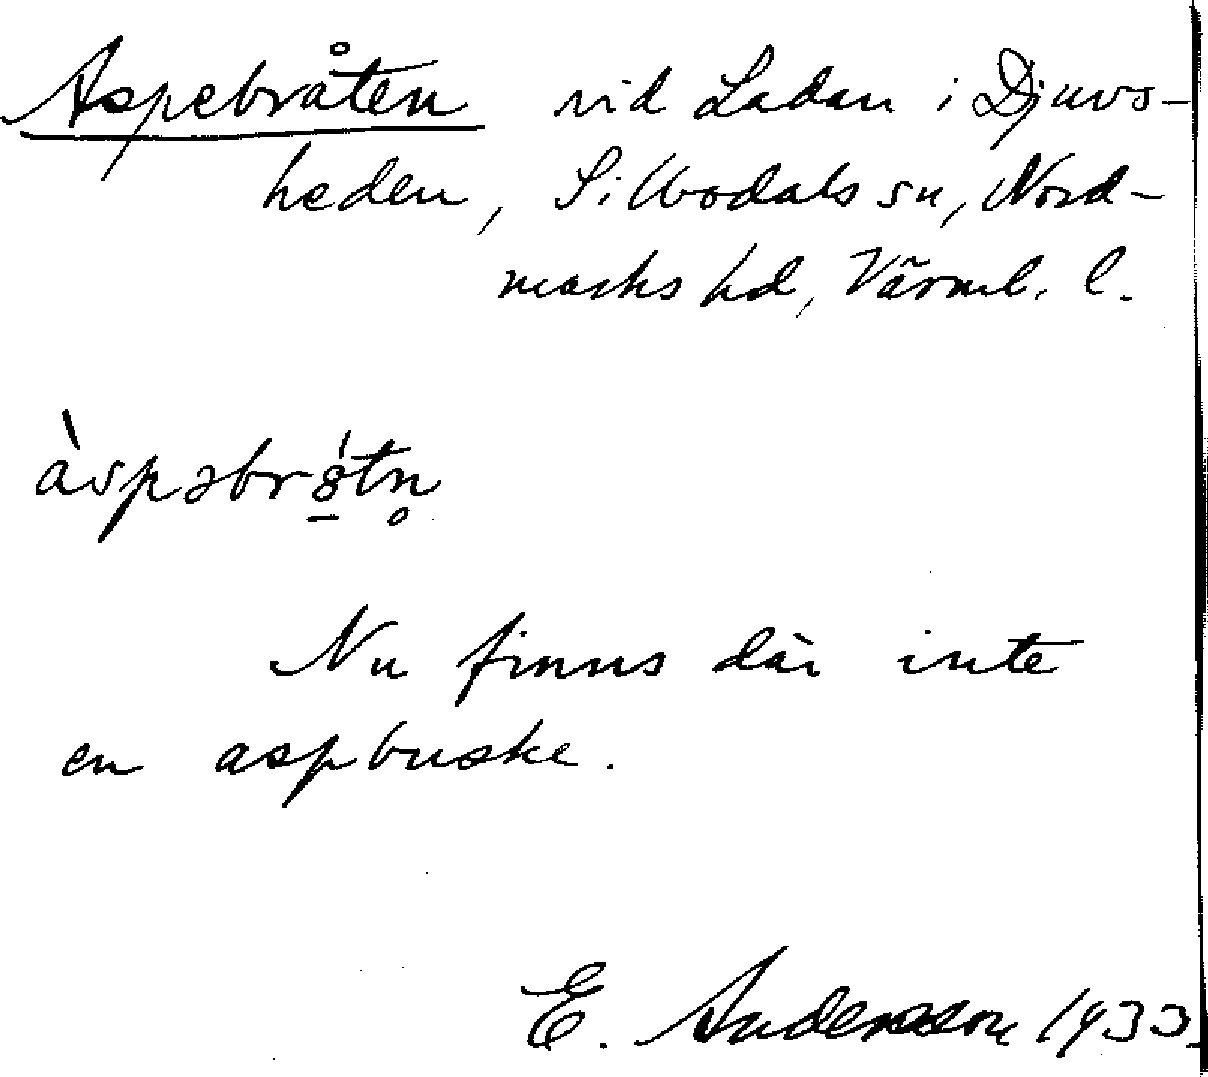 Aspebråten vid Ladan i Djuvs-
heden, Sillbodals sn, Nord-
marks hd, Värml. l.
àspəbró̱tn̥
Nu finns där inte
en aspbuske.
E. Andersson 1933